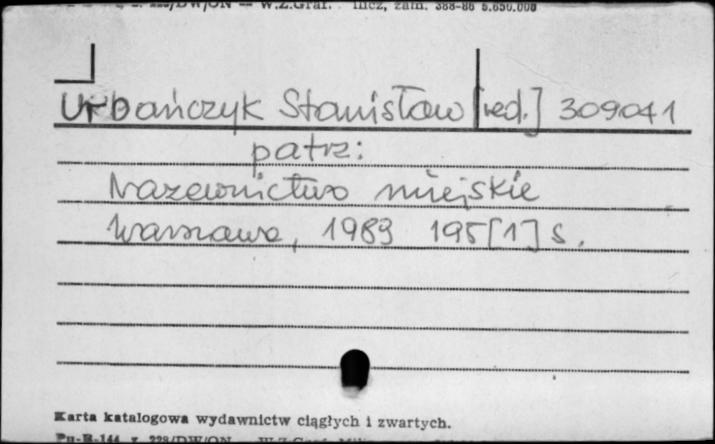 W.Z.Graf. zam. 388-86 5.650.000
Urbańczyk Stanisław [red.] 309041
patrz:
Nazewnictwo miejskie
Warszawa, 1989 195[1] s.
Karta katalogowa wydawnictw ciągłych i zwartych.
Pu-K-144 z. 229/DW/ON